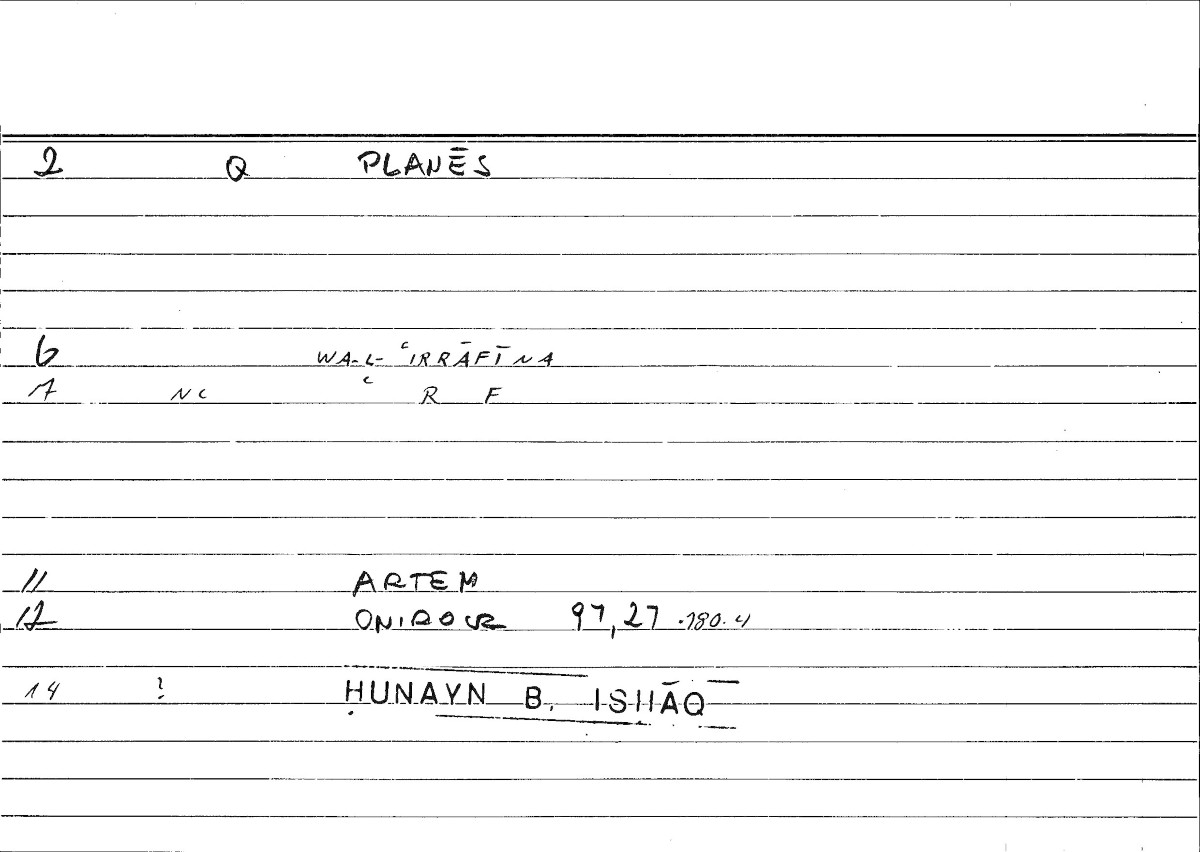 2 Q PLANĒS
6 WA-L-ʿIRRĀFĪNA
7 NC ʿ R F
11 ARTEM
12 ONIROCR 97,27 .180.4
14 ? ḤUNAYN B. ISḤĀQ